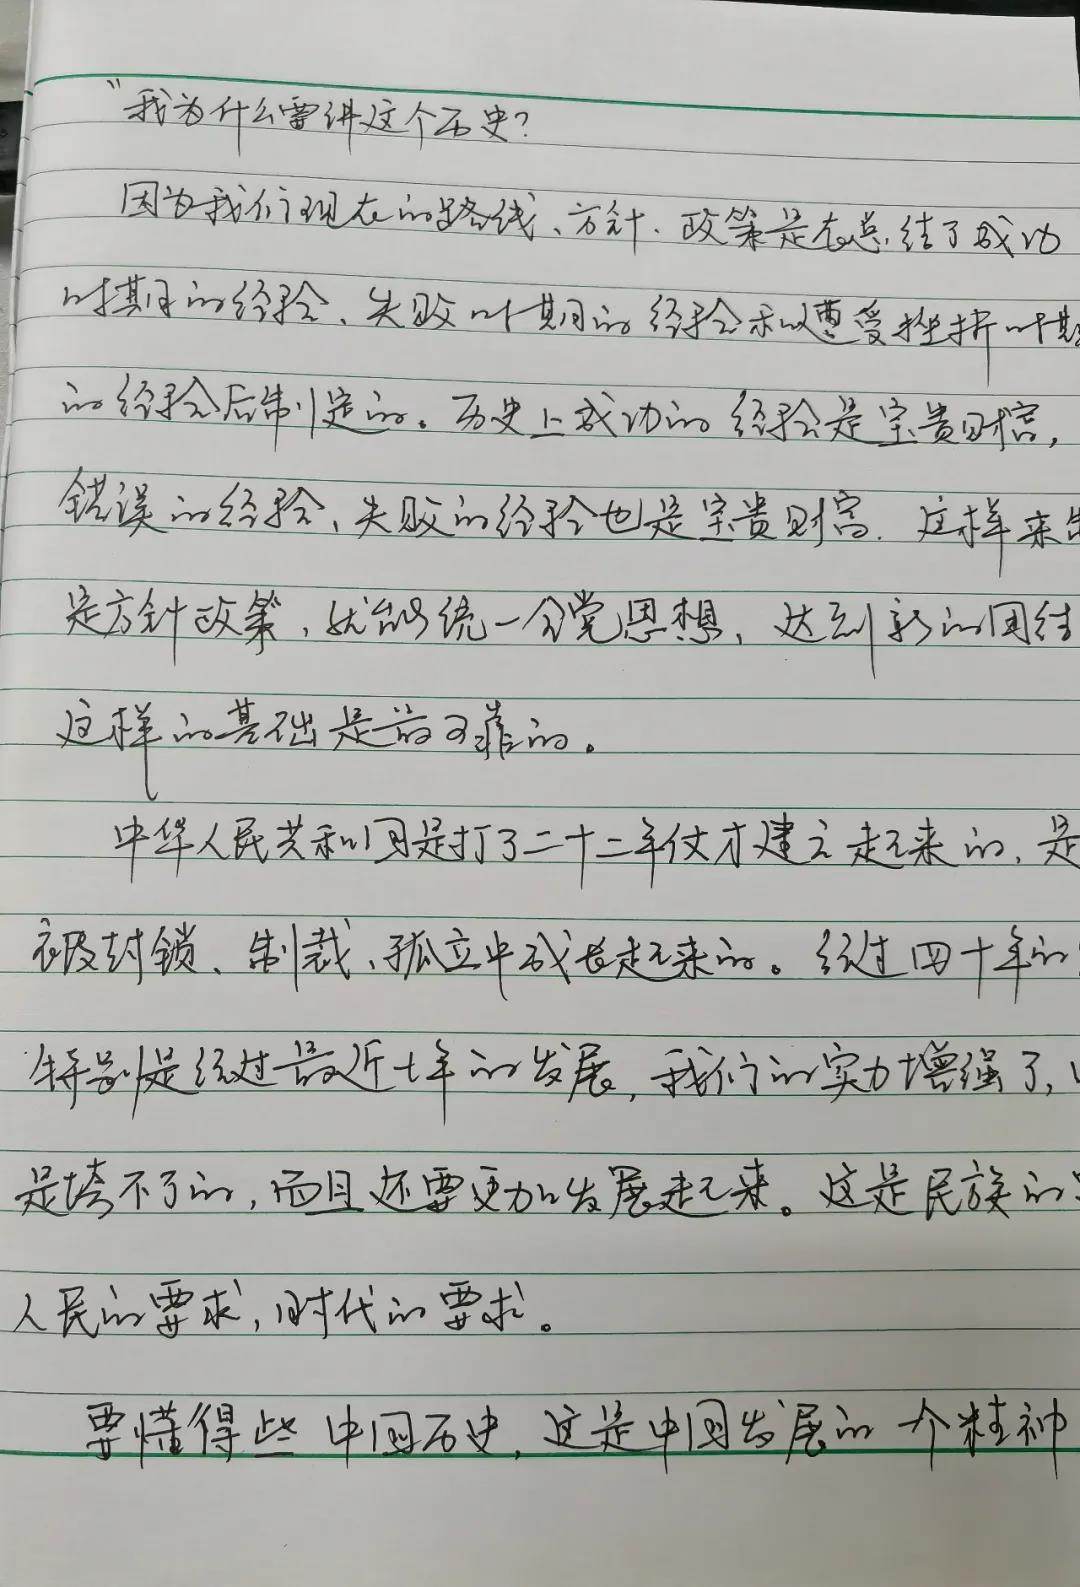 "我为什么要讲这个历史?
因为我们现在的路线、方针、政策是在总结了成功
时期的经验、失败时期的经验和遭受挫折时期
的经验后制定的。历史上成功的经验是宝贵财富,
错误的经验、失败的经验也是宝贵财富.这样来制
定方针政策,就能统一全党思想,达到新的团结
这样的基础是最可靠的。
中华人民共和国是打了二十二年仗才建立起来的,是
被封锁、制裁、孤立中成长起来的。经过四十年的
特别是经过最近十年的发展,我们的实力增强了,
是垮不了的,而且还要更加发展起来。这是民族的要
人民的要求,时代的要求。
要懂得些中国历史,这是中国发展的一个精神